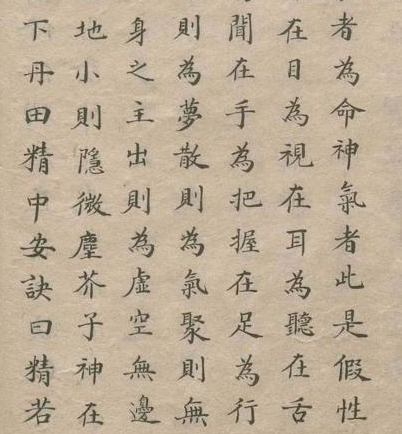 者為命神氣者此是假性
在目為視在耳為聽在舌
聞在手為把握在足為行
則為夢散則為氣聚則無
身之主出則為虛空無邊
地小則隱微塵芥子神在
下丹田精中安訣曰精若